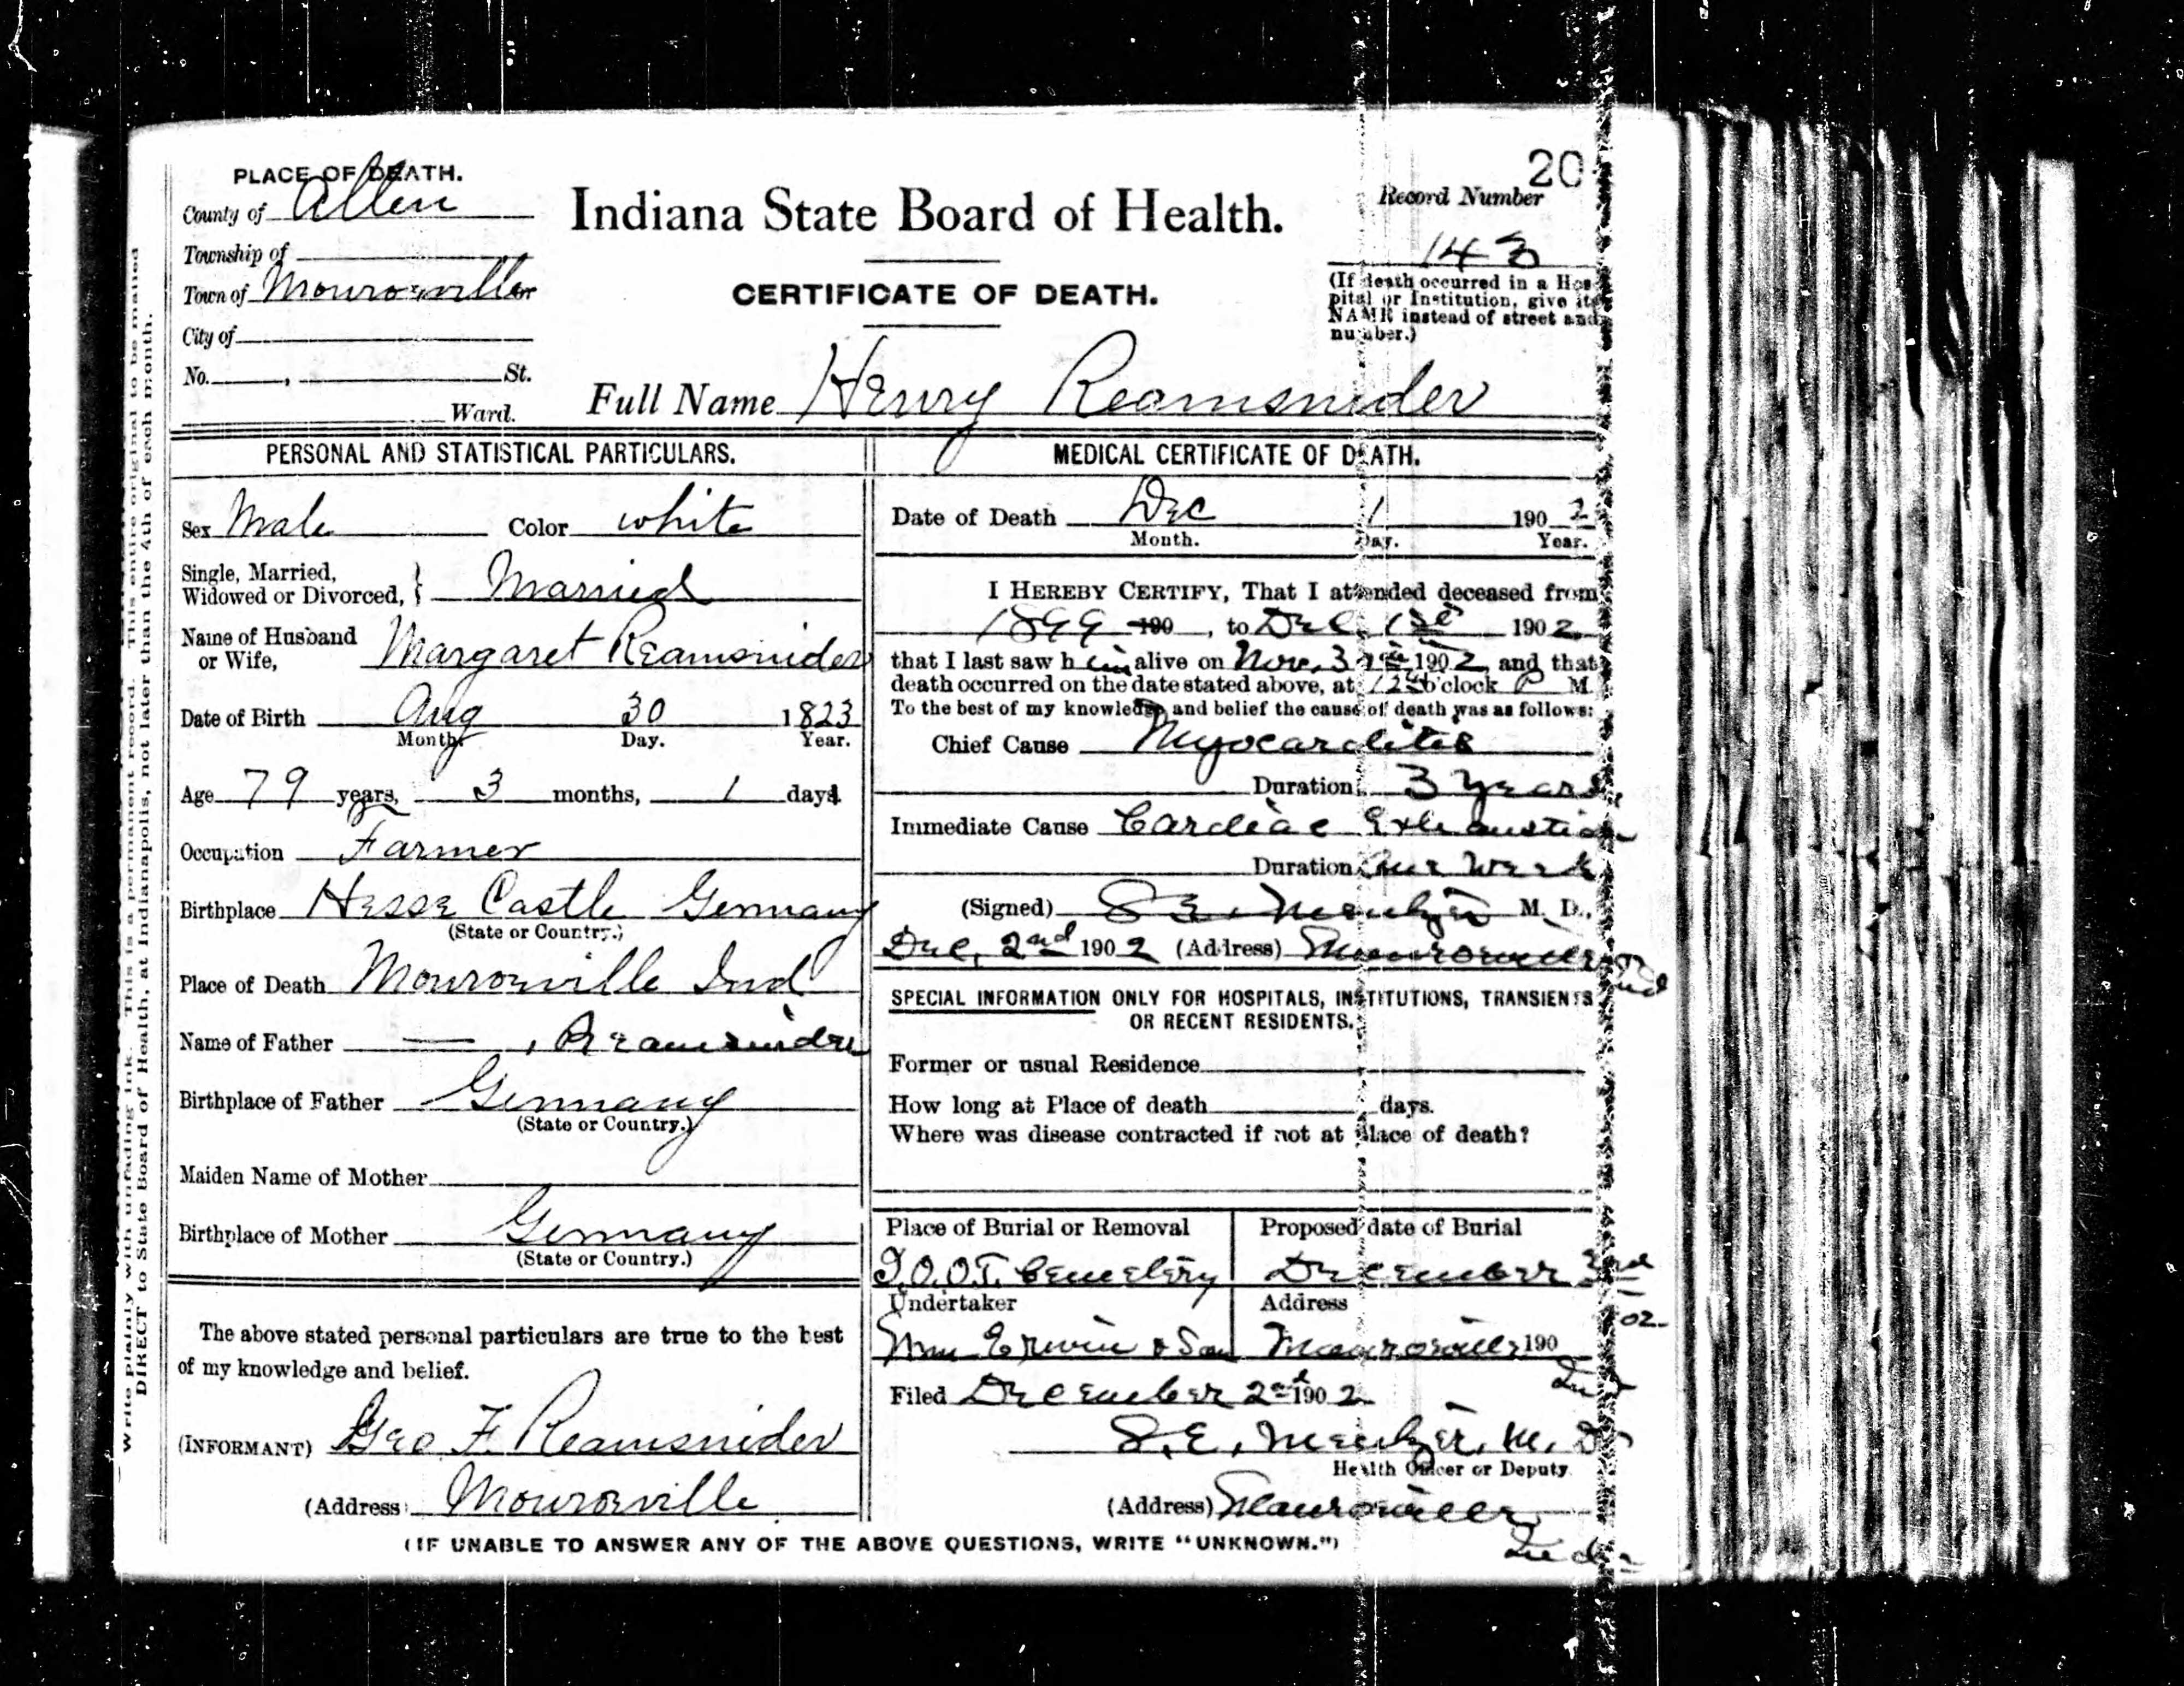 20
PLACE OF DEATH.
County of Allen
Township of
Town of Monroeville
City of
No. , St.
Ward.
Indiana State Board of Health.
CERTIFICATE OF DEATH.
Record Number
143
(If death occurred in a Hos-
pital or Institution, give its
NAME instead of street and
number.)
Full Name Henry Reamsnider
Write plainly with unfading ink. This is a permanent record. This entire original to be mailed
DIRECT to State Board of Health, at Indianapolis, not later than the 4th of each month.
PERSONAL AND STATISTICAL PARTICULARS.
Sex Male Color white
Single, Married,
Widowed or Divorced, } Married
Name of Husband
or Wife, Margaret Reamsnider
Date of Birth Aug 30 1823
Month. Day. Year.
Age 79 years, 3 months, 1 days
Occupation Farmer
Birthplace Hesse Castle Germany
(State or Country.)
Place of Death Monroeville Ind
Name of Father — , Reamsnider
Birthplace of Father Germany
(State or Country.)
Maiden Name of Mother
Birthplace of Mother Germany
(State or Country.)
The above stated personal particulars are true to the best
of my knowledge and belief.
(INFORMANT) Geo F. Reamsnider
(Address) Monroeville
MEDICAL CERTIFICATE OF DEATH.
Date of Death Dec 1 1902
Month. Day. Year.
I HEREBY CERTIFY, That I attended deceased from
1899 190 , to Dec. 1st 1902
that I last saw him alive on Nov. 1902 and that
death occurred on the date stated above, at o'clock P M.
To the best of my knowledge and belief the cause of death was as follows:
Chief Cause Myocarditis
Duration 3 years
Immediate Cause Cardiac Exhaustion
Duration One Week
(Signed) S. E. Mentzer M. D.,
Dec. 2nd 1902 (Address) Monroeville Ind
SPECIAL INFORMATION ONLY FOR HOSPITALS, INSTITUTIONS, TRANSIENTS
OR RECENT RESIDENTS.
Former or usual Residence
How long at Place of death days.
Where was disease contracted if not at place of death?
Place of Burial or Removal Proposed date of Burial
I.O.O.F. Cemetery December 3rd
Undertaker Address 1902.
Wm Erwin & Son Monroeville 190
Ind
Filed December 2nd 1902
S. E. Mentzer, M. D.
Health Officer or Deputy
(Address) Monroeville
Ind.
(IF UNABLE TO ANSWER ANY OF THE ABOVE QUESTIONS, WRITE "UNKNOWN.")